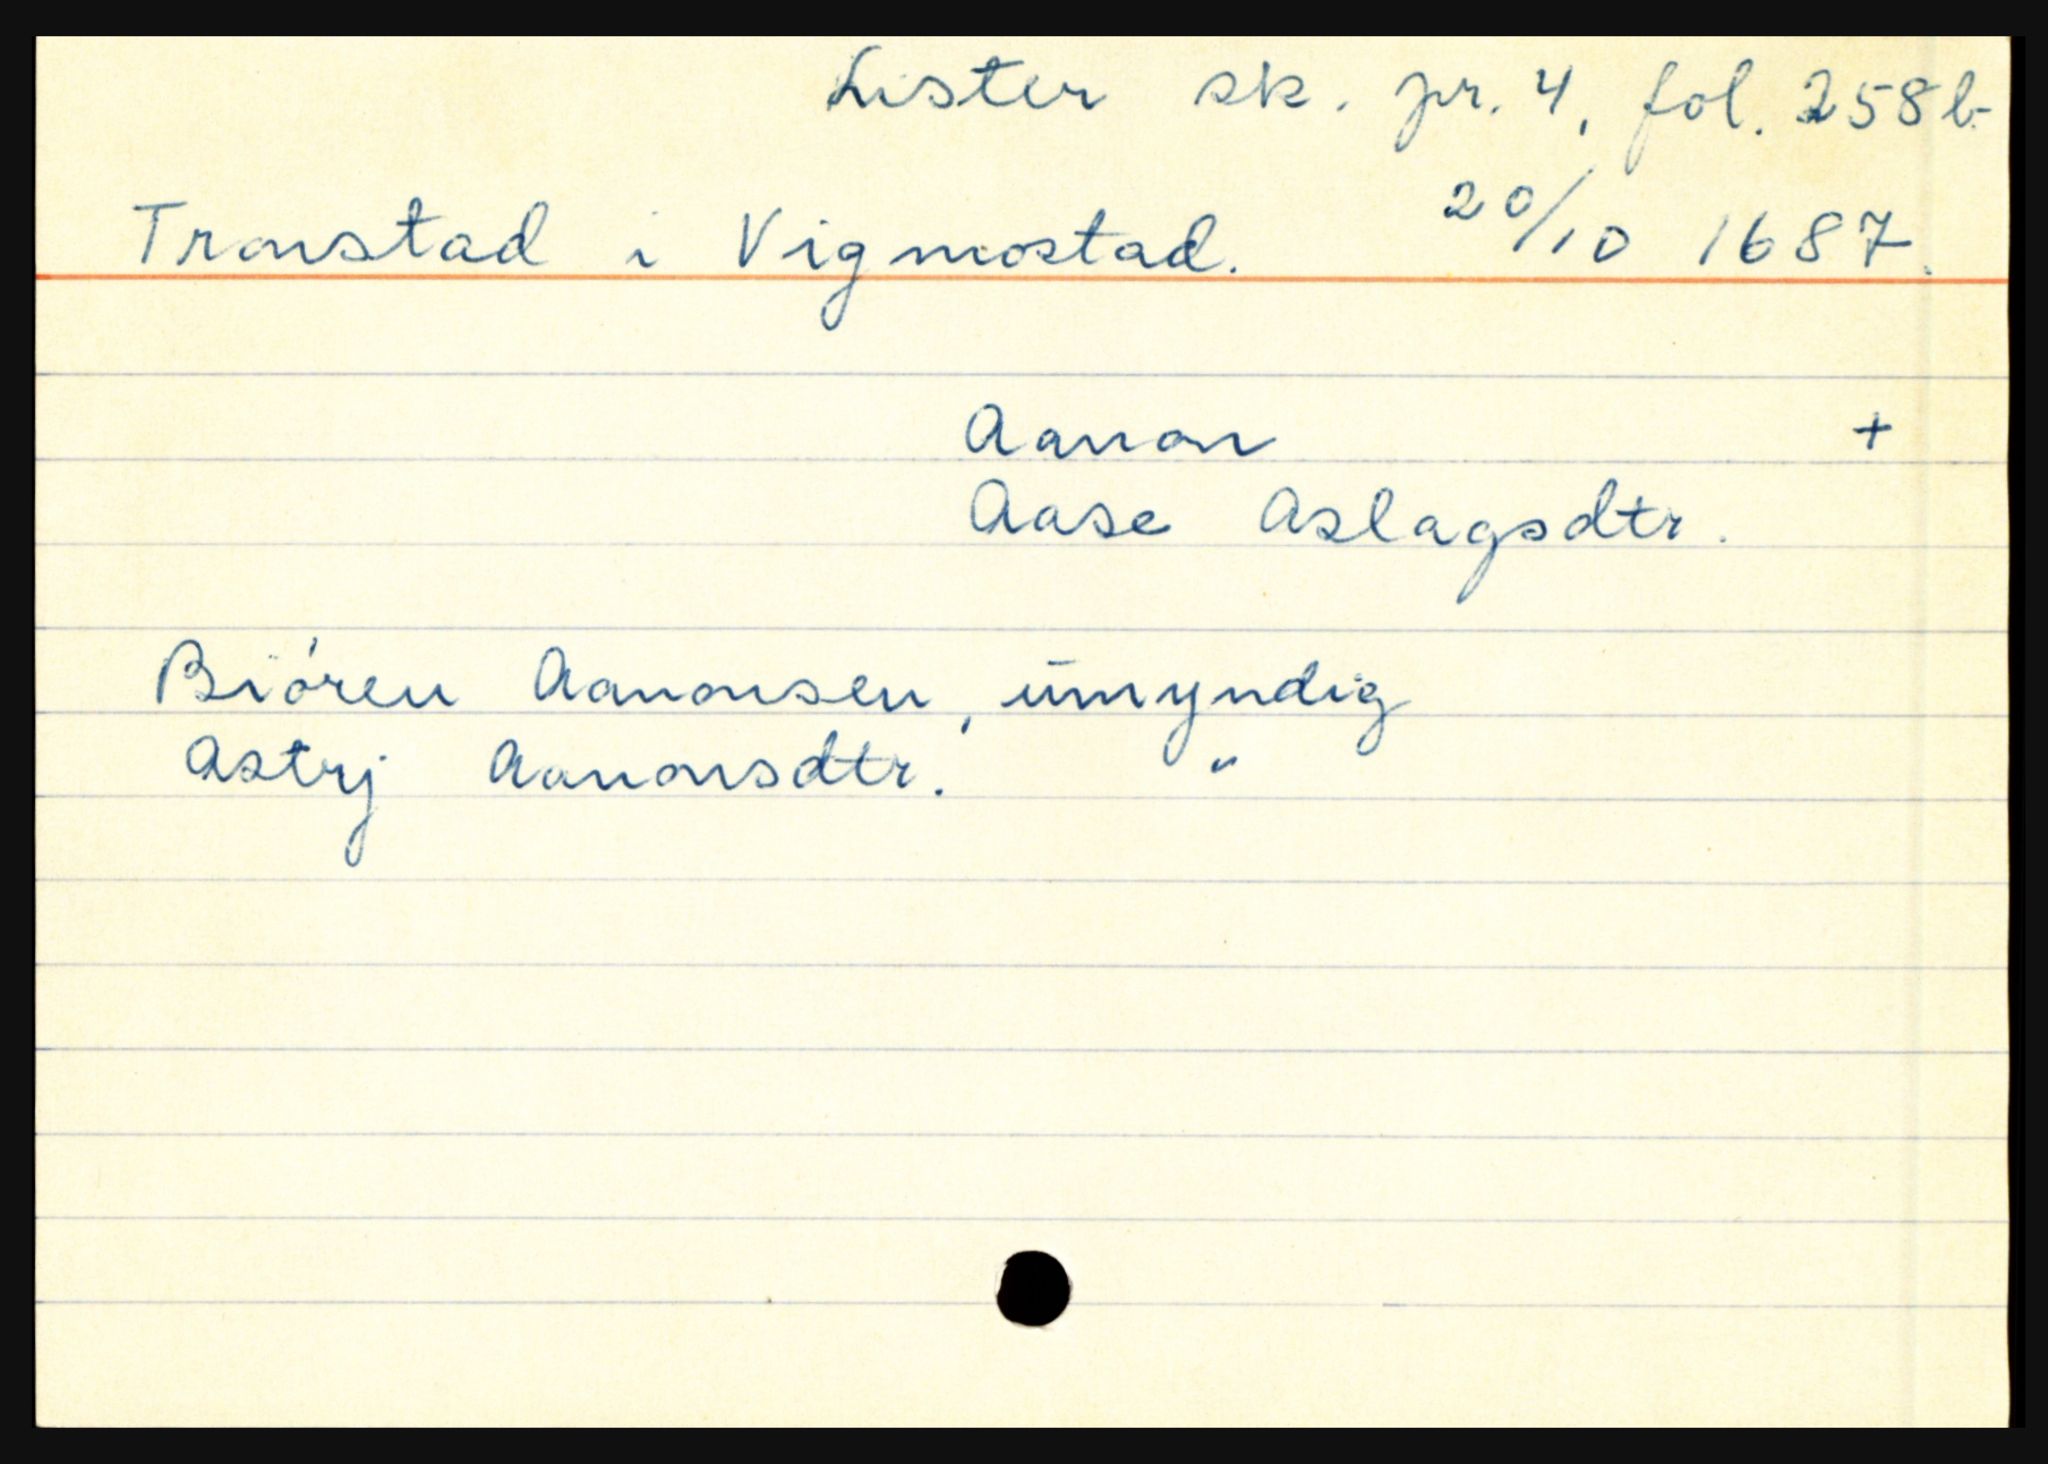 Lister sk. pr. 4, fol. 258b
Tronstad i Vigmostad. 20/10 1687.
Aanon +
Aase Aslagsdtr.
Biören Aanonsen, umyndig
Astrj Aanonsdtr. "